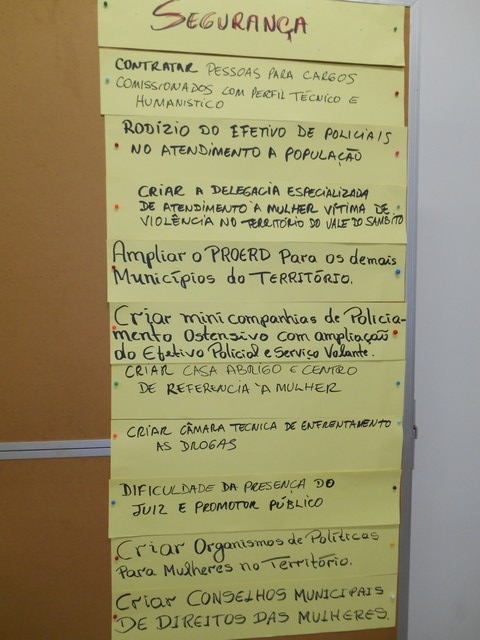 SEGURANÇA
CONTRATAR PESSOAS PARA CARGOS
COMISSIONADOS COM PERFIL TÉCNICO E
HUMANISTICO
RODÍZIO DO EFETIVO DE POLICIAIS
NO ATENDIMENTO A POPULAÇÃO
CRIAR A DELEGACIA ESPECIALIZADA
DE ATENDIMENTO À MULHER VÍTIMA DE
VIOLÊNCIA NO TERRITÓRIO DO VALE DO SAMBITO
Ampliar o PROERD Para os demais
Municípios do TERRITÓRIO.
Criar mini companhias de Policia-
mento Ostensivo com ampliação
do Efetivo Policial e Serviço Volante.
CRIAR CASA ABRIGO E CENTRO
DE REFERENCIA À MULHER
CRIAR CÂMARA TECNICA DE ENFRENTAMENTO
AS DROGAS
DIFICULDADE DA PRESENÇA DO
JUIZ E PROMOTOR PÚBLICO
Criar Organismos de Políticas
Para Mulheres no Território.
Criar CONSELHOS MUNICIPAIS
DE DIREITOS DAS MULHERES.